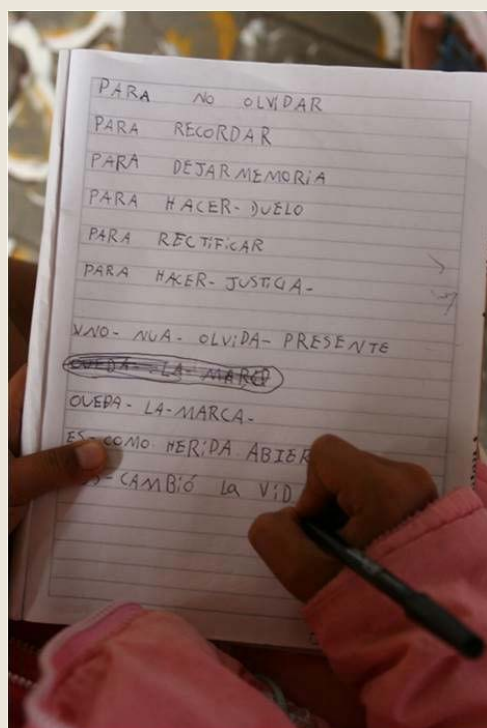 PARA NO OLVIDAR
PARA RECORDAR
PARA DEJAR MEMORIA
PARA HACER- DUELO
PARA RECTIFICAR
PARA HACER- JUSTICIA-
UNO- NUA- OLVIDA- PRESENTE
QUEDA- LA- MARCA
QUEDA- LA-MARCA-
ES- COMO HERIDA ABIER
-CAMBIÓ la VID